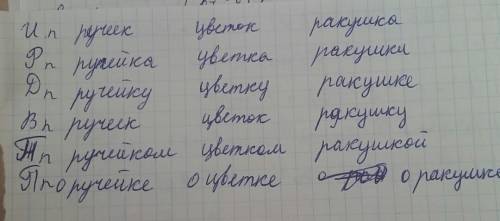 Ип ручеек цветок ракушка
Рп ручейка цветка ракушки
Дп ручейку цветку ракушке
Вп ручеек цветок ракушку
Тп ручейком цветком ракушкой
Пп о ручейке о цветке о о ракушке